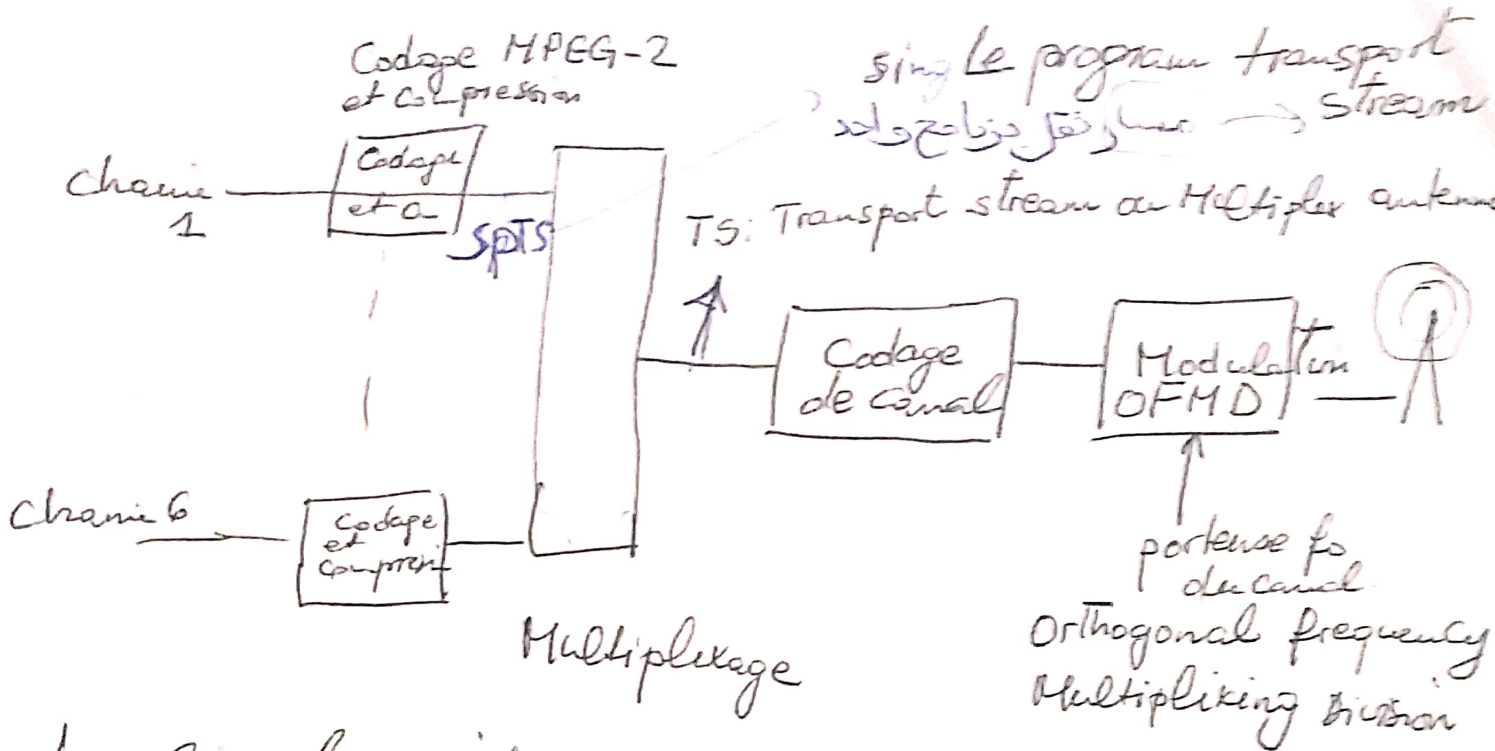 Codage MPEG-2
et compression
single program transport
stream
مسار نقل برنامج واحد
Chaine
1
Codage
et
SPTS
TS: Transport stream ou Multiplex antenne
Codage
de canal
Modulation
OFMD
Chaine 6
Codage
et
compressi
porteuse fo
du canal
Multiplexage
Orthogonal frequency
Multiplixing Division